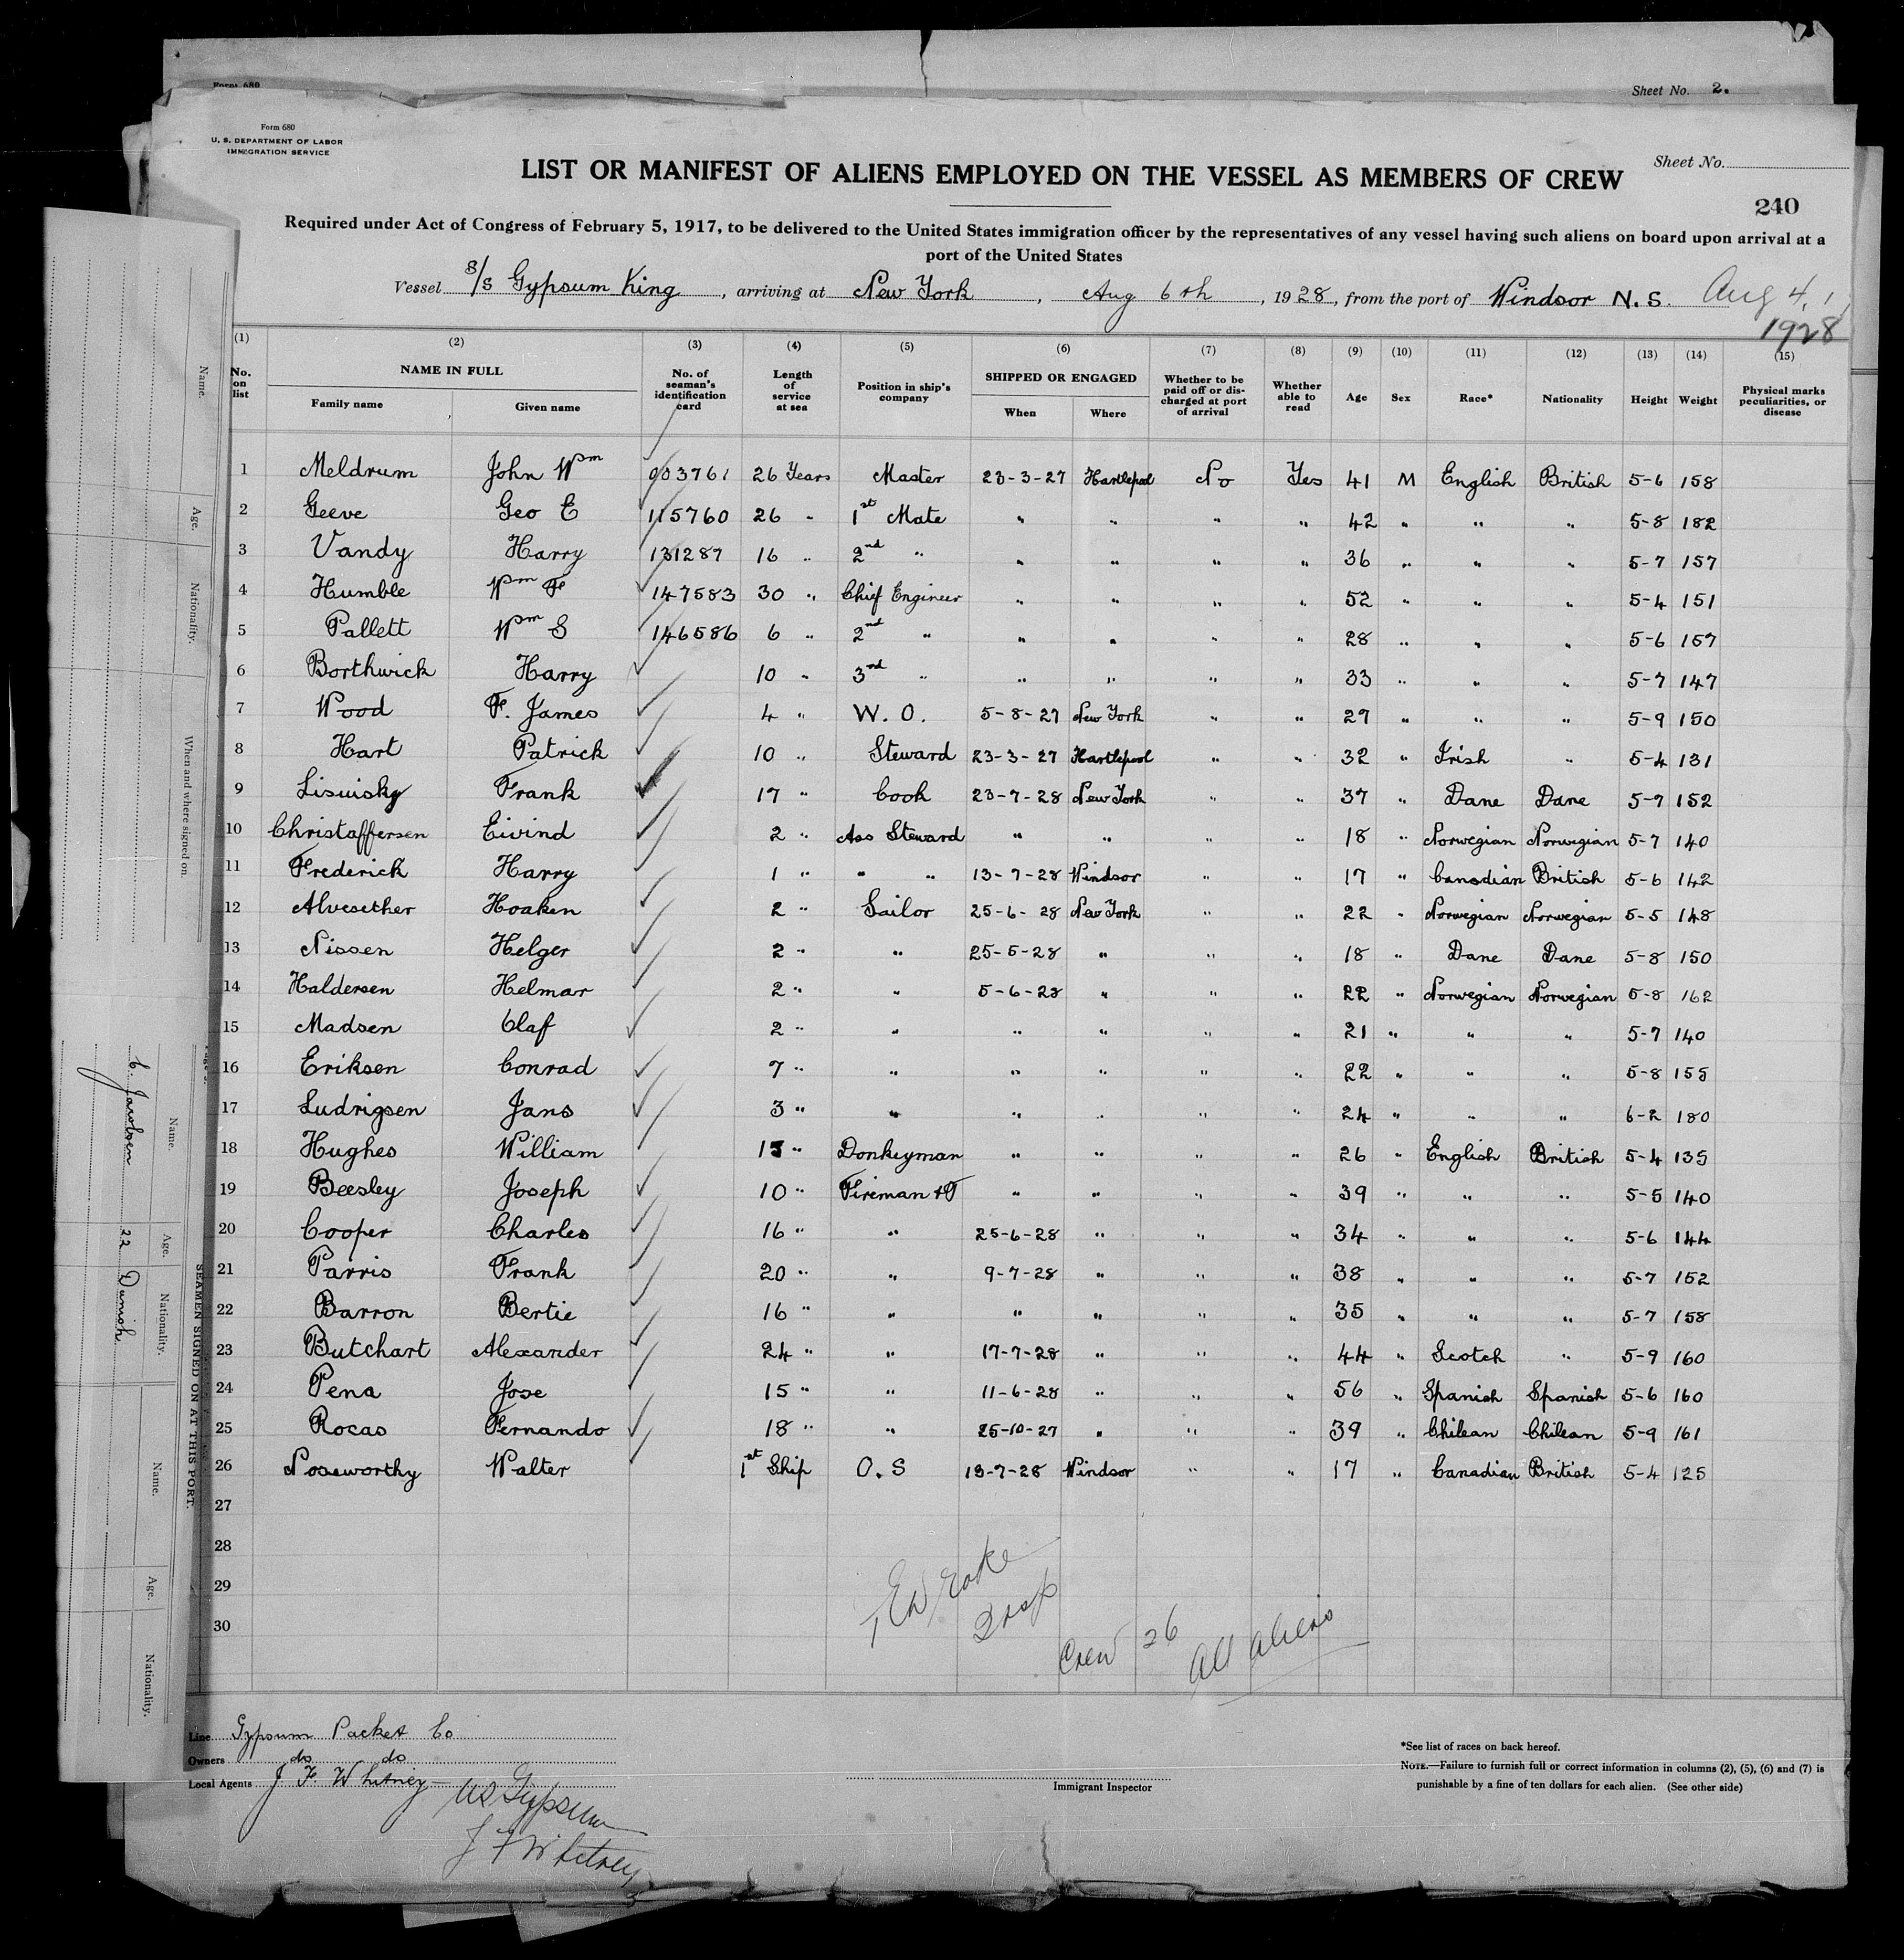 Form 680
Sheet No. 2.
Form 680
U. S. DEPARTMENT OF LABOR
IMMIGRATION SERVICE
Sheet No.
LIST OR MANIFEST OF ALIENS EMPLOYED ON THE VESSEL AS MEMBERS OF CREW
240
Required under Act of Congress of February 5, 1917, to be delivered to the United States immigration officer by the representatives of any vessel having such aliens on board upon arrival at a
port of the United States
Vessel S/S Gypsum King, arriving at New York, Aug 6th, 1928, from the port of Windsor N.S. Aug 4,
1928
(1) (2) (3) (4) (5) (6) (7) (8) (9) (10) (11) (12) (13) (14) (15)
No. on list NAME IN FULL Family name Given name No. of seaman's identification card Length of service at sea Position in ship's company SHIPPED OR ENGAGED When Where Whether to be paid off or discharged at port of arrival Whether able to read Age Sex Race* Nationality Height Weight Physical marks peculiarities, or disease
1 Meldrum John Wm 903761 26 Years Master 23-3-27 Hartlepool No Yes 41 M English British 5-6 158
2 Geeve Geo E 115760 26 " 1st Mate " " " " 42 " " " 5-8 182
3 Vandy Harry 131287 16 " 2nd " " " " " 36 " " " 5-7 157
4 Humble Wm F 147583 30 " Chief Engineer " " " " 52 " " " 5-4 151
5 Pallett Wm S 146586 6 " 2nd " " " " " 28 " " " 5-6 157
6 Borthwick Harry 10 " 3rd " " " " " 33 " " " 5-7 147
7 Wood F. James 4 " W. O. 5-8-27 New York " " 27 " " " 5-9 150
8 Hart Patrick 10 " Steward 23-3-27 Hartlepool " " 32 " Irish " 5-4 131
9 Lisuisky Frank 17 " Cook 23-7-28 New York " " 37 " Dane Dane 5-7 152
10 Christaffersen Eivind 2 " Ass Steward " " " " 18 " Norwegian Norwegian 5-7 140
11 Frederick Harry 1 " " " 13-7-28 Windsor " " 17 " Canadian British 5-6 142
12 Alvesether Hoaken 2 " Sailor 25-6-28 New York " " 22 " Norwegian Norwegian 5-5 148
13 Nissen Helger 2 " " 25-5-28 " " " 18 " Dane Dane 5-8 150
14 Haldersen Helmar 2 " " 5-6-28 " " " 22 " Norwegian Norwegian 5-8 162
15 Madsen Olaf 2 " " " " " " 21 " " " 5-7 140
16 Eriksen Conrad 7 " " " " " " 22 " " " 5-8 155
17 Ludrigsen Jans 3 " " " " " " 24 " " " 6-2 180
18 Hughes William 13 " Donkeyman " " " " 26 " English British 5-4 135
19 Beesley Joseph 10 " Fireman & T " " " " 39 " " " 5-5 140
20 Cooper Charles 16 " " 25-6-28 " " " 34 " " " 5-6 144
21 Parris Frank 20 " " 9-7-28 " " " 38 " " " 5-7 152
22 Barron Bertie 16 " " " " " " 35 " " " 5-7 158
23 Butchart Alexander 24 " " 17-7-28 " " " 44 " Scotch " 5-9 160
24 Pena Jose 15 " " 11-6-28 " " " 56 " Spanish Spanish 5-6 160
25 Rocas Fernando 18 " " 25-10-27 " " " 39 " Chilean Chilean 5-9 161
26 Noseworthy Walter 1st Ship O. S 13-7-28 Windsor " " 17 " Canadian British 5-4 125
27
28
29
30
Insp
Crew 26
All aliens
Line Gypsum Packet Co
Owners do do
Local Agents J F Whitney
US Gypsum
J F Whitney
Immigrant Inspector
*See list of races on back hereof.
NOTE.—Failure to furnish full or correct information in columns (2), (5), (6) and (7) is
punishable by a fine of ten dollars for each alien. (See other side)
Name. Age. Nationality. When and where signed on.
SEAMEN SIGNED ON AT THIS PORT.
Name. Age. Nationality.
C. Jacobsen 22 Danish
Name. Age. Nationality.